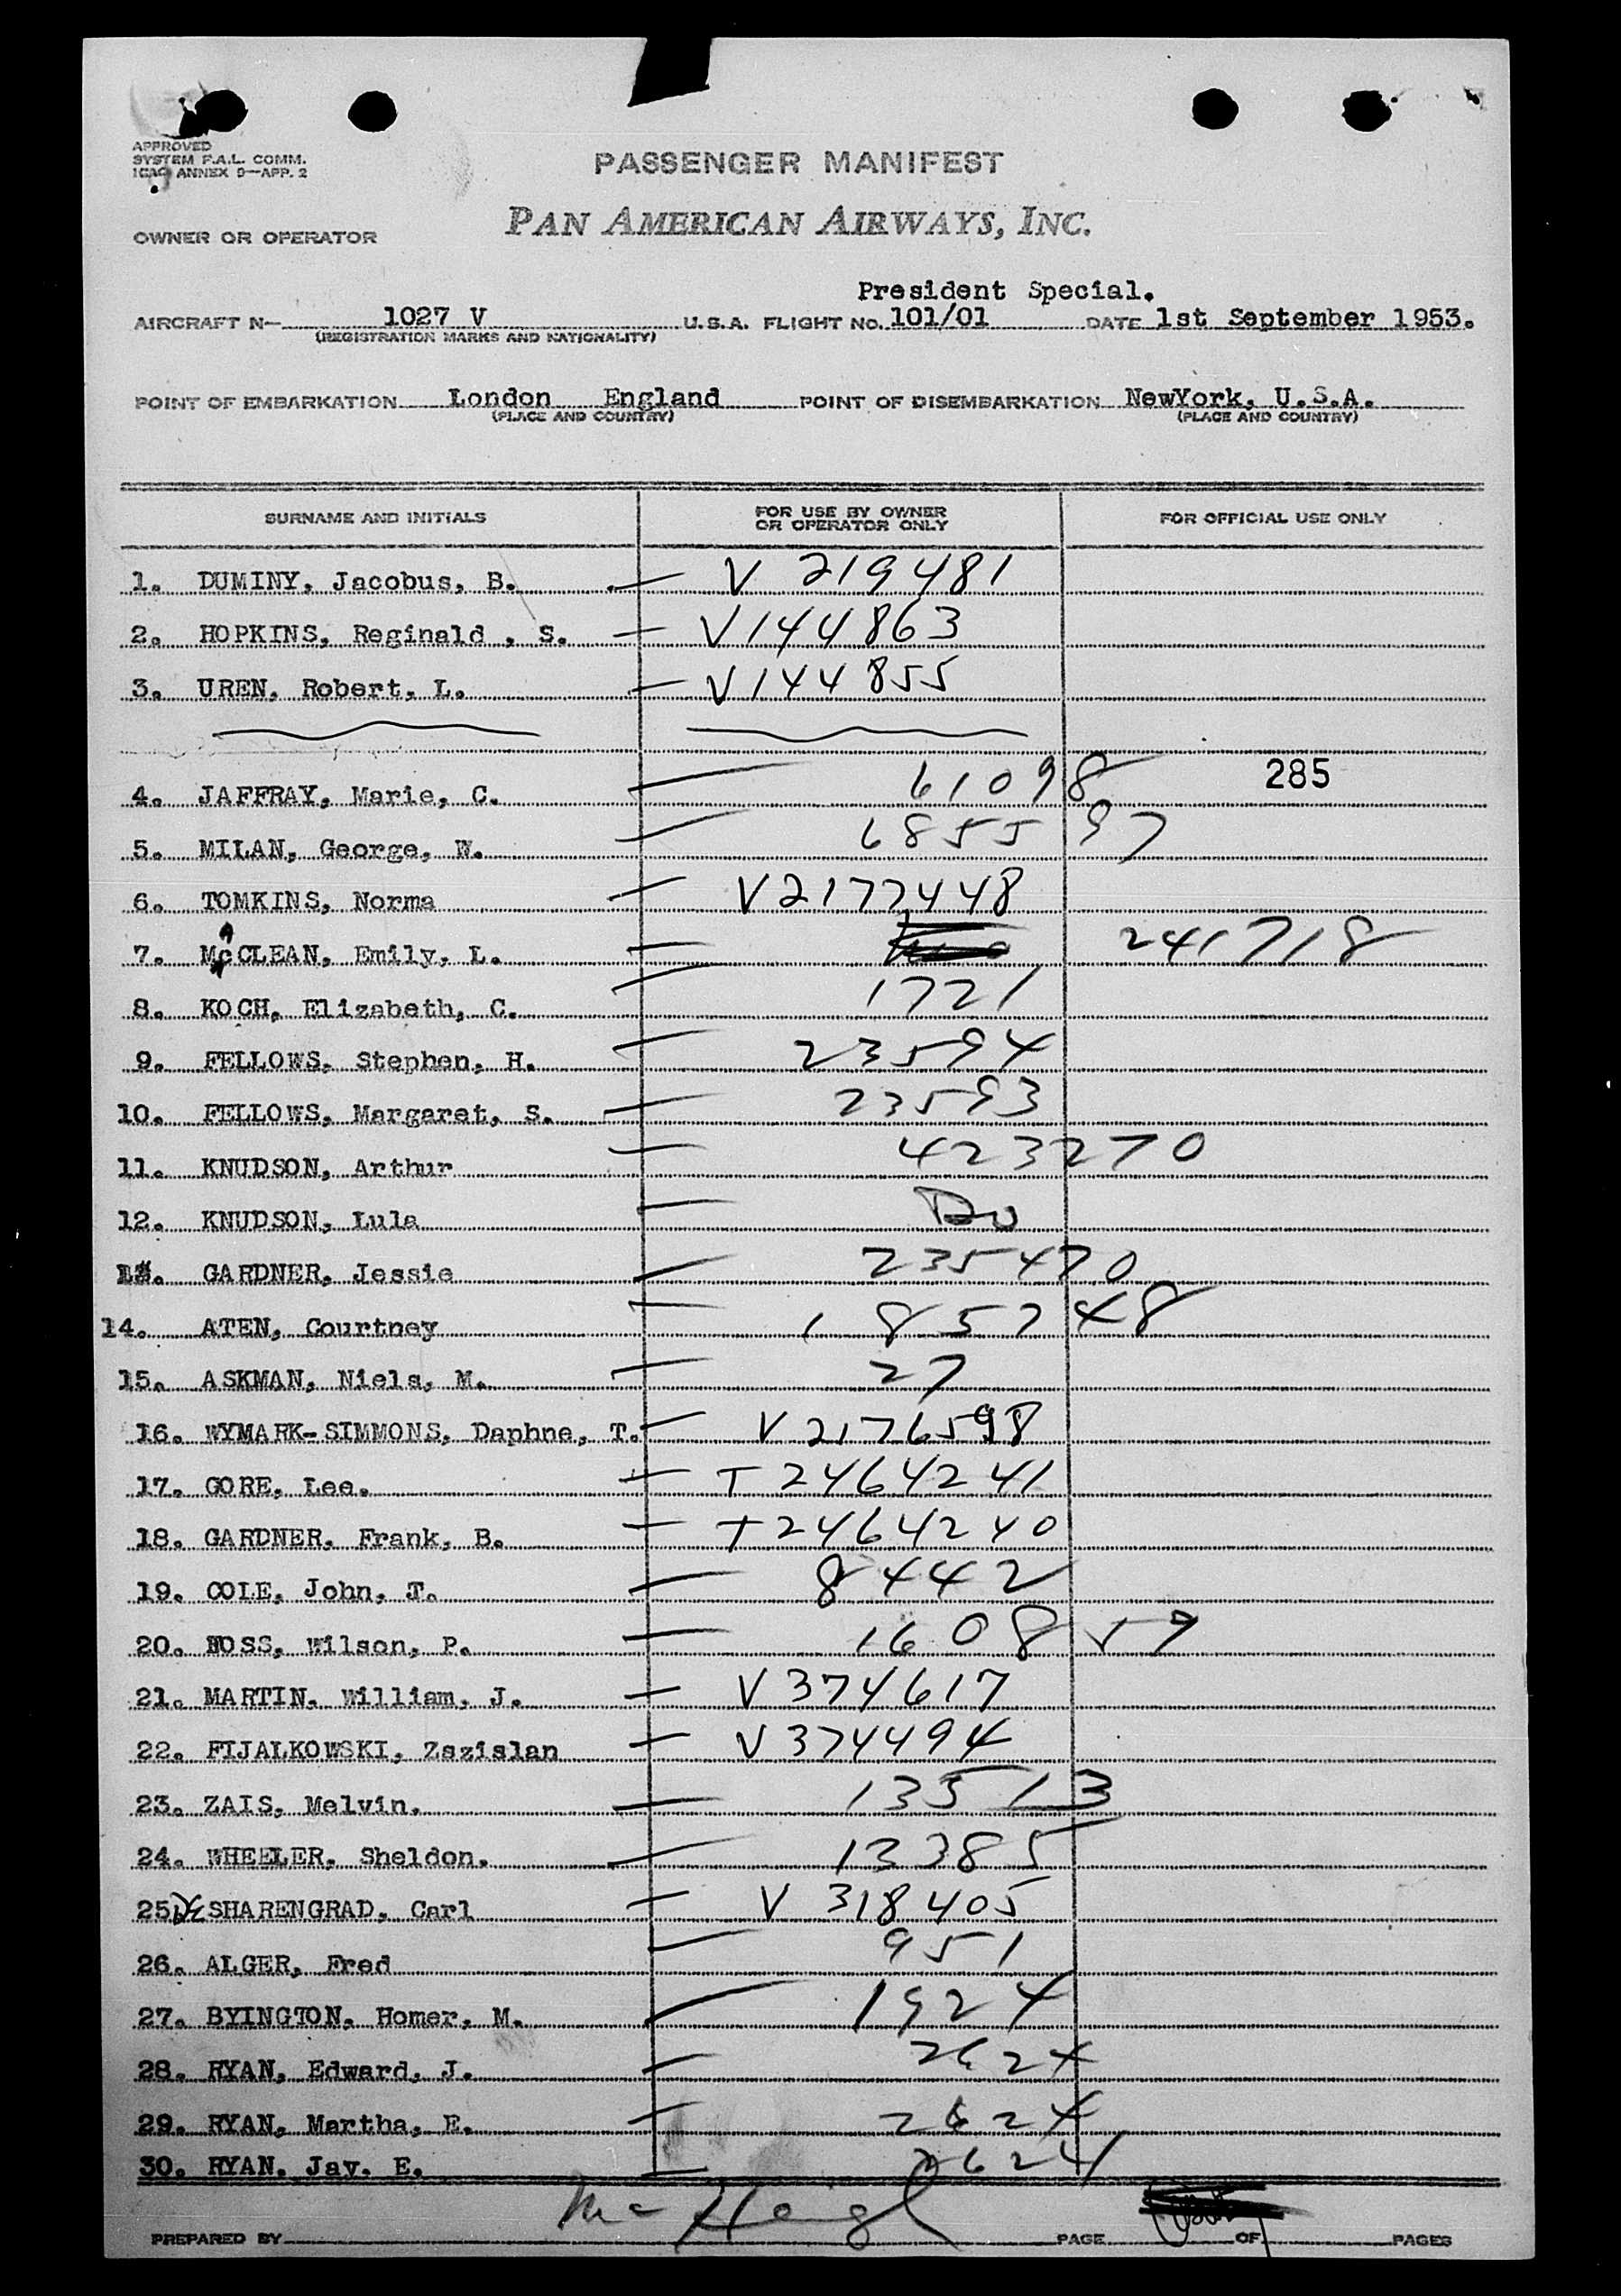 APPROVED
SYSTEM F.A.L. COMM.
ICAO ANNEX 9—APP. 2
PASSENGER MANIFEST
PAN AMERICAN AIRWAYS, INC.
OWNER OR OPERATOR
President Special.
AIRCRAFT N— 1027 V U.S.A. FLIGHT NO. 101/01 DATE 1st September 1953.
(REGISTRATION MARKS AND NATIONALITY)
POINT OF EMBARKATION London England POINT OF DISEMBARKATION NewYork, U.S.A.
(PLACE AND COUNTRY) (PLACE AND COUNTRY)
SURNAME AND INITIALS FOR USE BY OWNER OR OPERATOR ONLY FOR OFFICIAL USE ONLY
1. DUMINY, Jacobus, B. — V 219481
2. HOPKINS, Reginald , S. — V144863
3. UREN, Robert, L. — V144855
4. JAFFRAY, Marie, C. — 61098 285
5. MILAN, George, W. — 685597
6. TOMKINS, Norma — V2177448
7. McCLEAN, Emily, L. — 241718
8. KOCH, Elizabeth, C. — 1721
9. FELLOWS, Stephen, H. — 23594
10. FELLOWS, Margaret, S. — 23593
11. KNUDSON, Arthur — 423270
12. KNUDSON, Lula — Do
13. GARDNER, Jessie — 235470
14. ATEN, Courtney — 185748
15. ASKMAN, Niels, M. — 27
16. WYMARK-SIMMONS, Daphne, T. — V2176598
17. GORE, Lee. — T 2464241
18. GARDNER, Frank, B. — T2464240
19. COLE, John, T. — 84442
20. NOSS, Wilson, P. — 160857
21. MARTIN, William, J. — V374617
22. FIJALKOWSKI, Zszislan — V374494
23. ZAIS, Melvin. — 13513
24. WHEELER, Sheldon. — 13385
25. De SHARENGRAD, Carl — V 318405
26. ALGER, Fred — 951
27. BYINGTON, Homer, M. — 1924
28. RYAN, Edward, J. — 2624
29. RYAN, Martha, E. — 2624
30. RYAN, Jay, E. — 2624
PREPARED BY PAGE OF PAGES